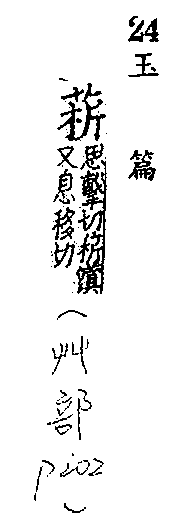 24
玉篇
菥
思擊切菥蓂
又息移切
(艸部
p202)